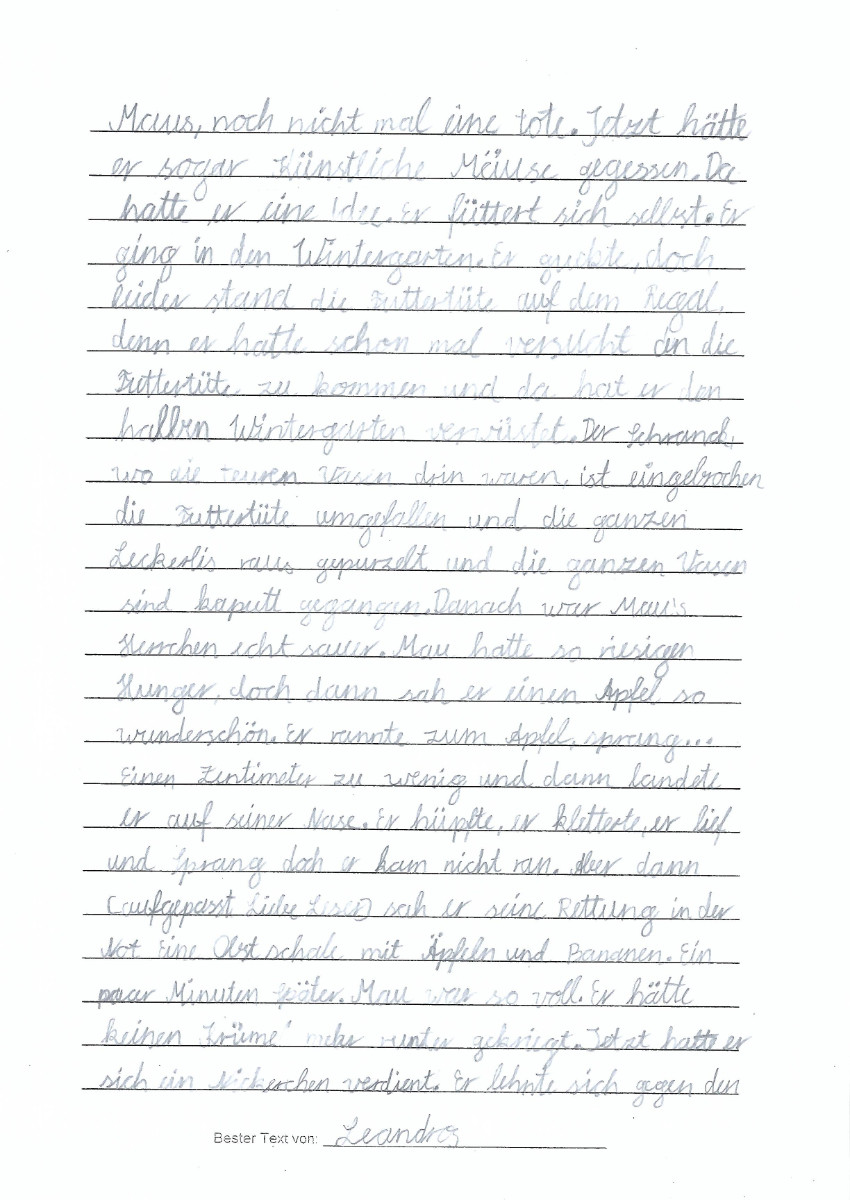 Maus, noch nicht mal eine tote. Jetzt hätte
er sogar Künstliche Mäuse gegessen. Da
hatte er eine Idee. Er füttert sich selbst. Er
ging in den Wintergarten. Er guckte, doch
leider stand die Futtertüte auf dem Regal,
denn er hatte schon mal versucht an die
Futtertüte zu kommen und da hat er den
halben Wintergarten verwüstet. Der Schranck,
wo die teuren Vasen drin waren, ist eingebrochen
die Futtertüte umgefallen und die ganzen
Leckerlis raus gepurzelt und die ganzen Vasen
sind kaputt gegangen. Danach war Mau's
Herrchen echt sauer. Mau hatte so riesigen
Hunger, doch dann sah er einen Apfel so
wunderschön. Er rannte zum Apfel, sprang...
Einen Zentimeter zu wenig und dann landete
er auf seiner Nase. Er hüpfte, er kletterte, er lief
und sprang doch er kam nicht ran. Aber dann
(aufgepasst Liebe Leser) sah er seine Rettung in der
Not Eine Obst schale mit Äpfeln und Bananen. Ein
paar Minuten später. Mau war so voll. Er hätte
keinen Krümel mehr runter gekriegt. Jetzt hatte er
sich ein Nickerchen verdient. Er lehnte sich gegen den
Bester Text von: Leandros